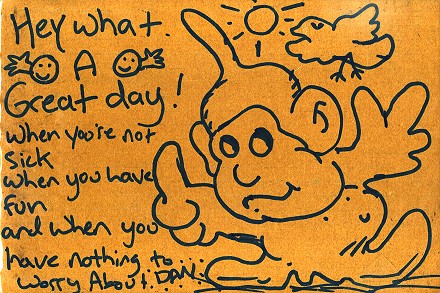 Hey what.
A
Great day!
when you're not
sick
when you have
fun
and when you
have nothing to...
worry About. DAN.